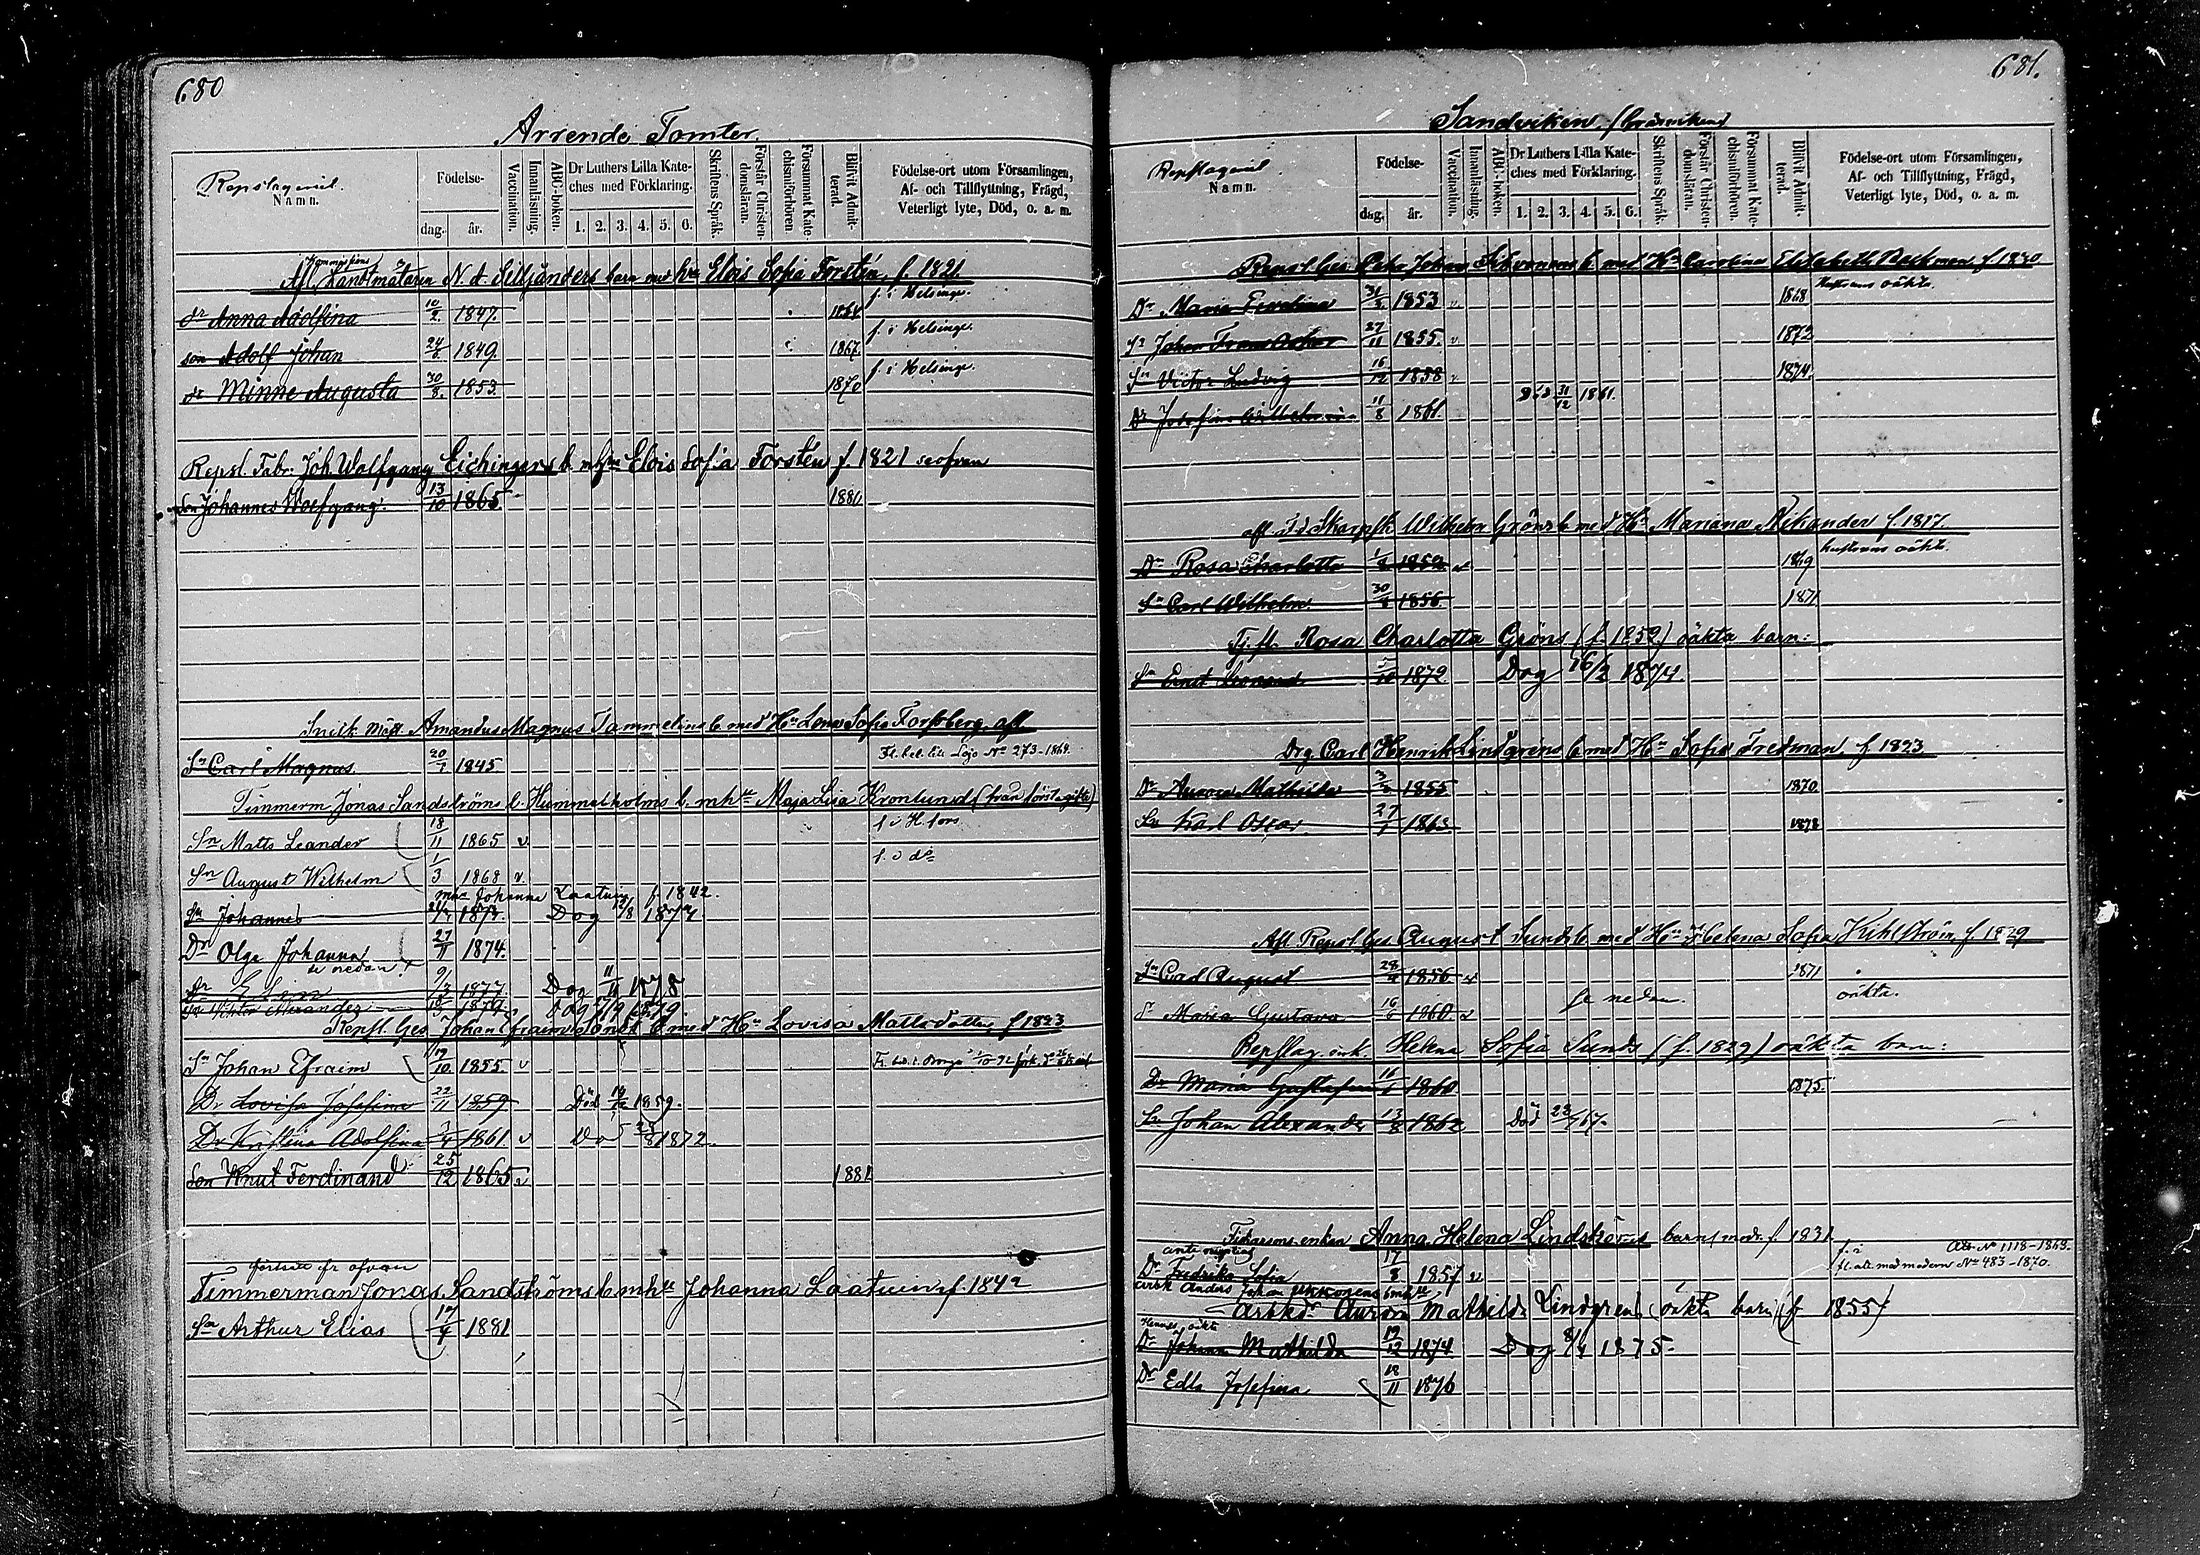 680
Arrende Tomter.
Repslageriet.
Namn.
Födelse-
dag.
år.
Vaccination.
Innanläsning.
ABC-boken.
Dr Luthers Lilla Kate-
ches med Förklaring.
1. 2. 3. 4. 5. 6.
Skriftens Språk.
Förstår Christen-
domsläran.
Försummat Kate-
chismiförhören
Blifvit Admit-
terad.
Födelse-ort utom Församlingen,
Af- och Tillflyttning, Frägd,
Veterligt lyte, Död, o. a. m.
Afl. Landtmätaren N. A. Silljanders barn med hu Elois Sofia Forstén f. 1821.
dr Anna Adolfina 10/2. 1847. 1864 f. i Helsingf.
son Adolf Johan 24/6 1849. 1867. f. i Helsingf.
dr Minne Augusta 30/8. 1853. 1870 f. i Helsingf.
Repsl. Fabr. Joh. Wolfgang Eichingers b. mhu Elois Sofia Forsten f. 1821 se ofvan
son Johannes Wolfgang. 13/10 1865 1880
Snick. Mäst. Amandus Magnus Tammelins b. med Hu Lena Sofia Forssberg, afl
Sn Carl Magnus. 20/1 1845 Fl. bet. till Lojo No 273-1869.
Timmerm Jonas Sandströms l. Hummelholms b. mhu Maja Lisa Kronlund (från första gifte)
Sn Matts Leander 18/11 1865 v. f. i H.fors
Sn August Wilhelm 1/3 1868 v. f. i do
mhu Johanna Laatuin f. 1842.
Sn Johannes 1873. Dog 1/8 1874
Dr Olga Johanna 27/11 1874.
se nedan!
Dr Elin 9/3 1877 Dog 11/11 1878.
Sn Viktor Alexander 1879. Dog 27/9 1879.
Repsl. Ges. Johan Efraim Sunds b med Hu Lovisa Mattsdotter f 1823
Sn Johan Efraim 19/10 1855 v
Dr Lovisa Josefina 22/11 1859 Död 1859.
Dr Kristina Adolfina 1861 v Död 1872.
Son Knut Ferdinand 25/12 1865 v 1881
fortsatt fr ofvan
Timmerman Jonas Sandströms b. mhu Johanna Laatuin f. 1842
Sn Arthur Elias 17/4 1881
681.
Sandviken. (Gräsviken)
Repslageriet
Namn.
Födelse-
dag.
år.
Vaccination.
Innanläsning.
ABC-boken.
Dr Luthers Lilla Kate-
ches med Förklaring.
1. 2. 3. 4. 5. 6.
Skriftens Språk.
Förstår Christen-
domsläran.
Försummat Kate-
chismiförhören.
Blifvit Admit-
terad.
Födelse-ort utom Församlingen,
Af- och Tillflyttning, Frägd,
Veterligt lyte, Död, o. a. m.
Repsl. Ges. Johan b. med Hu Carolina Elisabeth f. 1830
Dr Maria Evelina 31/3 1853 v 1868 hustruns oäkta.
Sn Johan Frans Oskar 27/11 1855. v 1872
Sn Victor Ludvig 16/12 1858 v 1874.
Dr Josefina Wilhelmina 11/8 1861. Död 31/12 1861.
afl. Wilhelm Gröns b med Hu Mariana Nikander f. 1817.
Dr Rosa Charlotta 1/8 1852 v 1869 hustruns oäkta.
Sn Carl Wilhelm 30/8 1856 1871
Tj.fl. Rosa Charlotta Gröns (f. 1852) oäkta barn:
Sn Ernst Leonard 1/10 1872 Dog 16/2 1874
Drg. Carl Henrik Lindgréns b med Hu Sofia Fredman, f. 1823
Dr Aurora Mathilda 3/3 1855 1870.
Sn Karl Oscar. 27/1 1863 1878
Afl. Repsl. Ges August Sunds b med Hu Helena Sofia Kuhlström, f 1829
Sn Carl August 28/4 1856 v 1871
Dr Maria Gustava 16/6 1860 v se nedan. oäkta.
Repslag. enk. Helena Sofia Sunds (f. 1829) oäkta barn:
Dr Maria Gustafva 16/6 1860 1875.
Sn Johan Alexander 13/8 1862 Död 23/7 67.
Fiskarens enkan Anna Helena Lindströms barn, mod. f. 1831.
Dr Fredrika Sofia 17/8 1857 v f. i Att. No 1118-1863.
fl. att. med modern No 483-1870.
Arbk Anders Johan b mhu
Arbkdr Aurora Mathilda Lindgrens oäkta barn (f. 1855)
Hennes oäkta
Dr Johanna Mathilda 19/12 1874 Dog 8/4 1875.
Dr Edla Josefina 18/11 1876